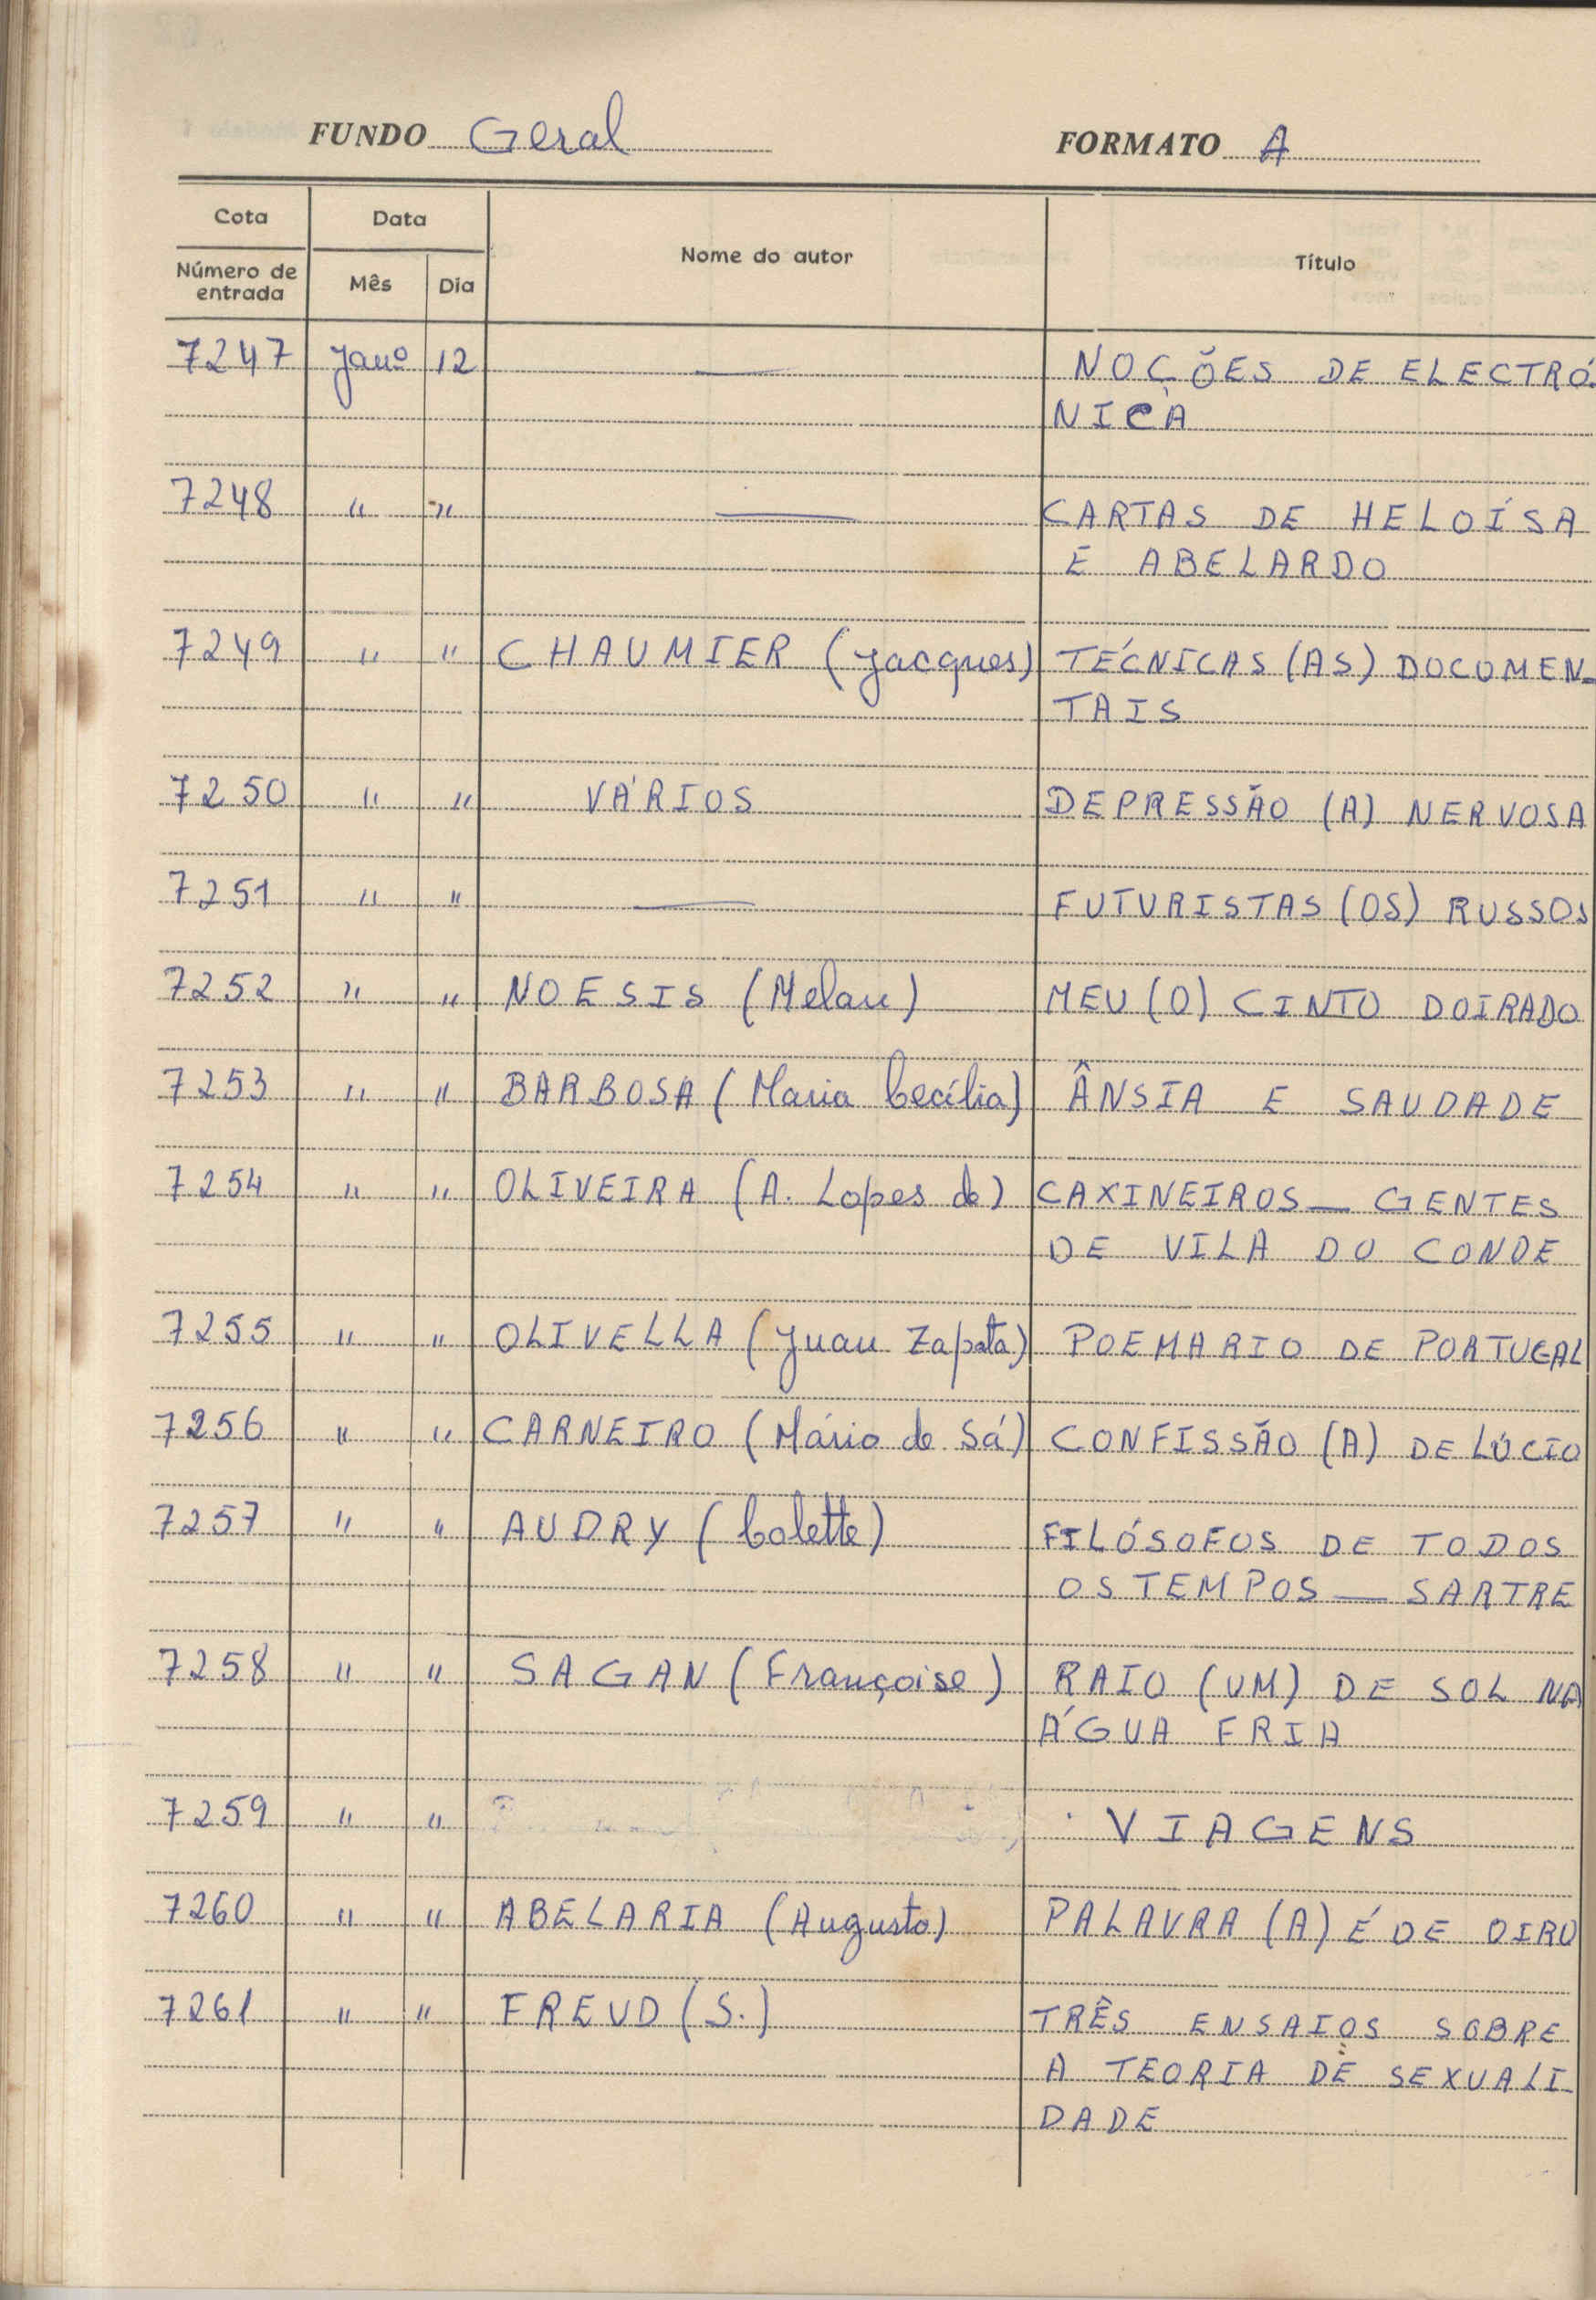 FUNDO Geral FORMATO A
Cota Data Nome do autor Título
Número de entrada Mês Dia
7247 Janº 12 — NOÇÕES DE ELECTRÓ-
NICA
7248 " " — CARTAS DE HELOÍSA
E ABELARDO
7249 " " CHAUMIER (Jacques) TÉCNICAS (AS) DOCUMEN-
TAIS
7250 " " VÁRIOS DEPRESSÃO (A) NERVOSA
7251 " " — FUTURISTAS (OS) RUSSOS
7252 " " NOESIS (Melan) MEU (O) CINTO DOIRADO
7253 " " BARBOSA (Maria Cecília) ÂNSIA E SAUDADE
7254 " " OLIVEIRA (A. Lopes de) CAXINEIROS — GENTES
DE VILA DO CONDE
7255 " " OLIVELLA (Juan Zapata) POEMARIO DE PORTUGAL
7256 " " CARNEIRO (Mário de Sá) CONFISSÃO (A) DE LÚCIO
7257 " " AUDRY (Colette) FILÓSOFOS DE TODOS
OS TEMPOS — SARTRE
7258 " " SAGAN (Françoise) RAIO (UM) DE SOL NA
ÁGUA FRIA
7259 " " VIAGENS
7260 " " ABELARIA (Augusto) PALAVRA (A) É DE OIRO
7261 " " FREUD (S.) TRÊS ENSAIOS SOBRE
A TEORIA DE SEXUALI-
DADE